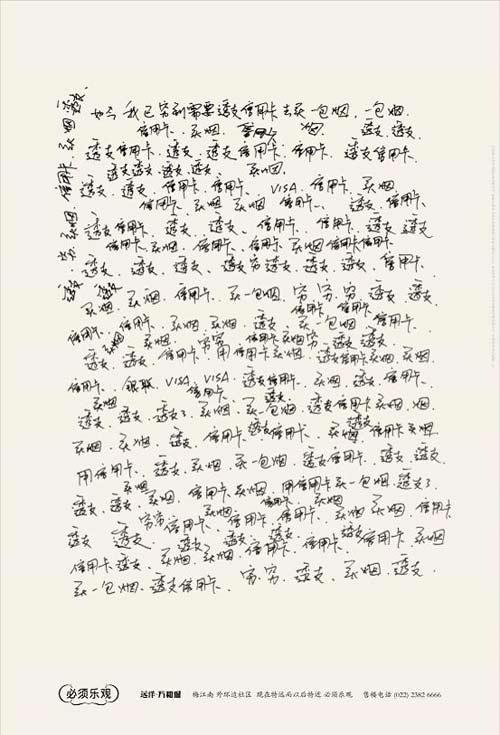 如今我已穷到需要透支信用卡去买一包烟,一包烟.
信用卡、买烟. 信用卡 烟. 透支.透支.
透支信用卡、透支、透支信用卡、信用卡、透支信用卡、
透支透支、透支、透支、 买烟.
透支、透支、信用卡、信用卡、VISA、信用卡、买烟.
信用卡、买烟 买烟 信用卡、透支信用卡、
透支信用卡、透支、透支、信用卡、信用卡、透支 透支
信用卡、买烟、信用卡、信用卡、买烟信用卡信用卡、
透支、透支、透支、透支穷透支、透支、透支、信用卡、
买烟、买烟、信用卡、买一包烟、穷 穷 穷 透支、透支、
信用卡、信用卡、买烟 买烟、透支、买一包烟、信用卡、
透支、透支、信用卡 用信用卡买烟、透支信用卡买烟、买烟、
信用卡、银联、VISA、VISA、透支信用卡、买烟、透支、信用卡、
透支、透支、透支了、买烟、买一包烟、透支信用卡买烟、烟、
买烟、买烟、透支、信用卡透支信用卡、买烟、信用卡买烟
用信用卡、透支、买烟、买一包烟、透支信用卡、透支、透支
透支、透支、买烟、信用卡买烟、用信用卡买一包烟、透支了、
透支 透支 穷穷 信用卡、信用卡、信用卡、买烟 买烟、信用卡
信用卡透支、买烟、买烟、信用卡、信用卡、信用卡 买烟
买一包烟、透支信用卡、穷、穷、透支、买烟、透支.
必须乐观
远洋·万和城 梅江南 外环边社区 现在特远而以后特近 必须乐观 售楼电话 (022) 2382 6666